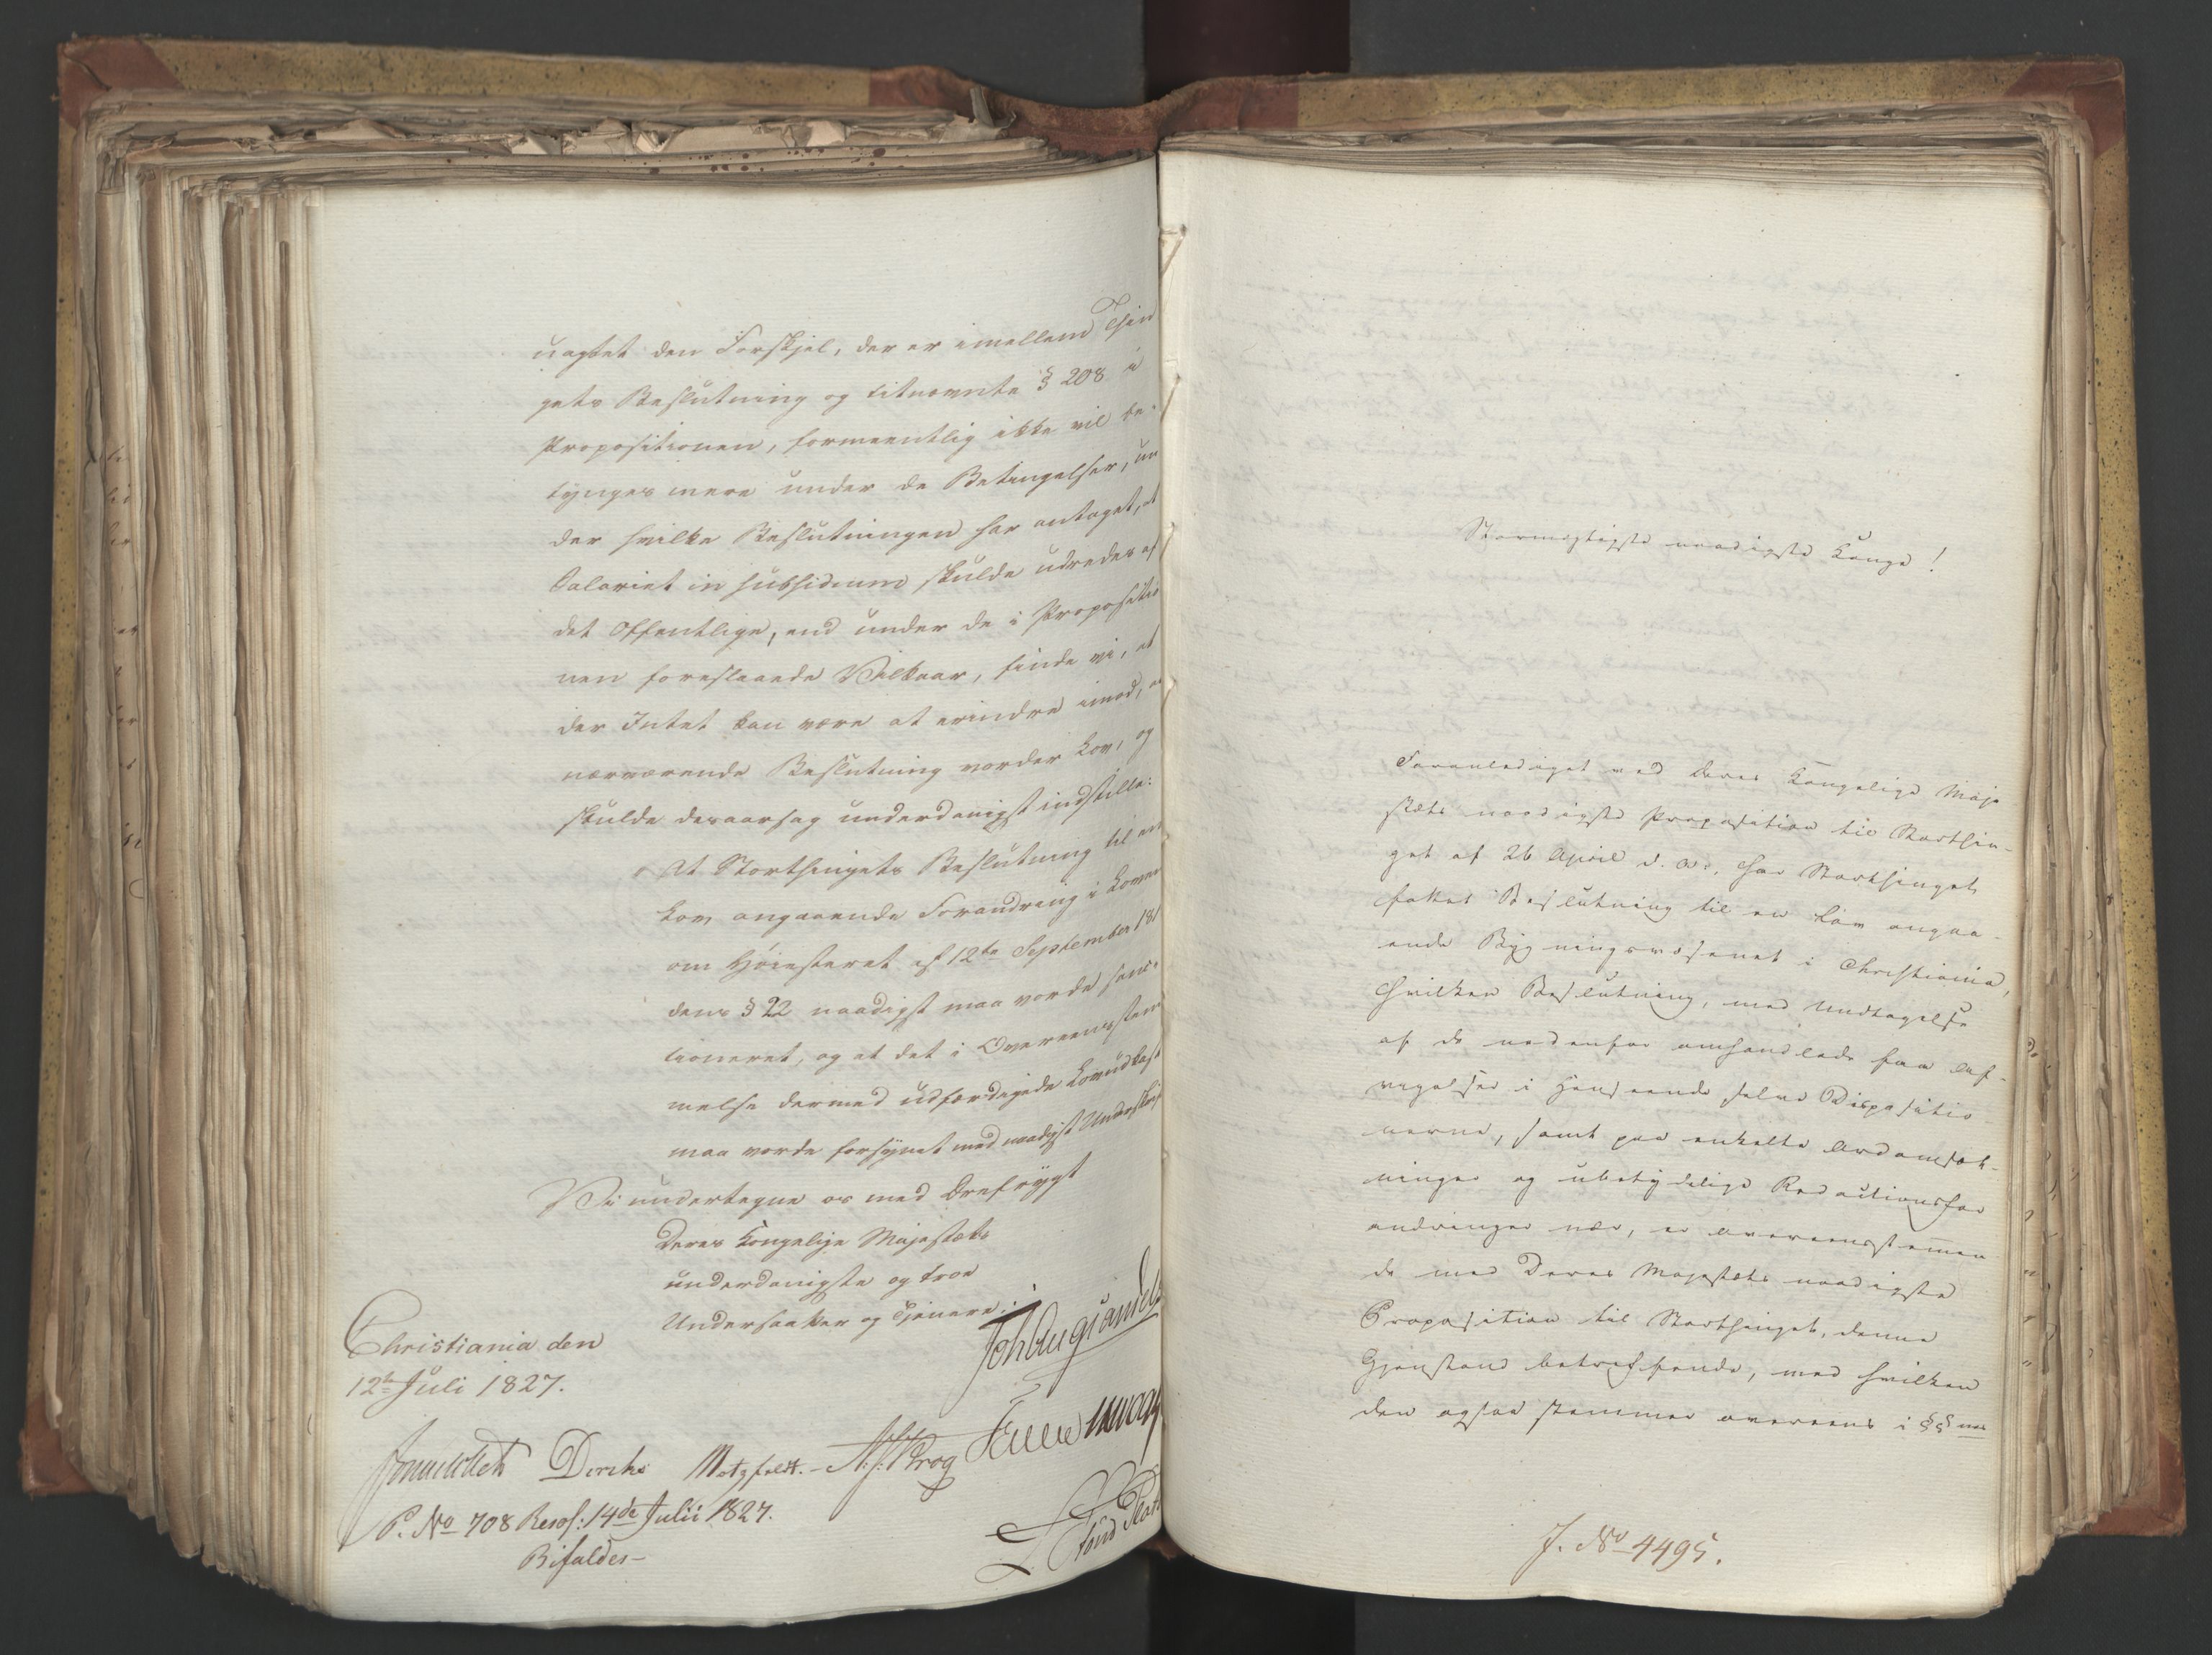 uagtet den Forskjel, der er imellem Thin
gets Beslutning og bitnævnte § 208 i
Propositionen, formeentlig ikke vil be-
tynges mere under de Betingelser, un
der hvilke Beslutningen har antaget, at
Salariet in subsidium skulde udredes af
det Offentlige, end under de i Propositio
nen foreslaaede Vilkaar, finde vi, at
der Intet kan være at erindre imod, at
nærværende Beslutning vorder Lov, og
skulde desaarsag underdanigst indstille:
At Storthingets Beslutning til en
Lov angaaende Forandring i Loven
om Høiesteret af 12te September 181
dens § 22 naadigst maa vorde sanc-
tioneret, og at det i Overeensstem
melse dermed udfærdigede Lovudkast
maa vorde forsynet med naadigst Underskrift
Vi undertegne os med Ærefrygt
Deres Kongelige Majestæts
underdanigste og troe
Undersaatter og Tjenere:
Christiania den
12te Juli 1827.
Joh Aug Sandels
Diriks Motzfeldt. Krog
P. No 708 Resol: 14de Julii 1827.
Bifaldes-
Stormægtigste naadigste Konge!
Foranlediget ved Deres Kongelige Maje
stæts naadigste Proposition til Storthin-
get af 26 April d. A., har Storthinget
fattet Beslutning til en Lov angaa-
ende Bygningsvæsenet i Christiania,
hvilken Beslutning, med Undtagelse
af de nedenfor omhandlede faa Af-
vigelser i Henseende selve Dispositio
nerne, samt paa enkelte Ordomsæt-
ninger og ubetydelige Redactionsfor
andringer nær, er overeensstemmen
de med Deres Majestæts naadigste
Proposition til Storthinget, denne
Gjenstand betreffende, med hvilken
den ogsaa stemmer overeens i §§ nes
J. No 4495.